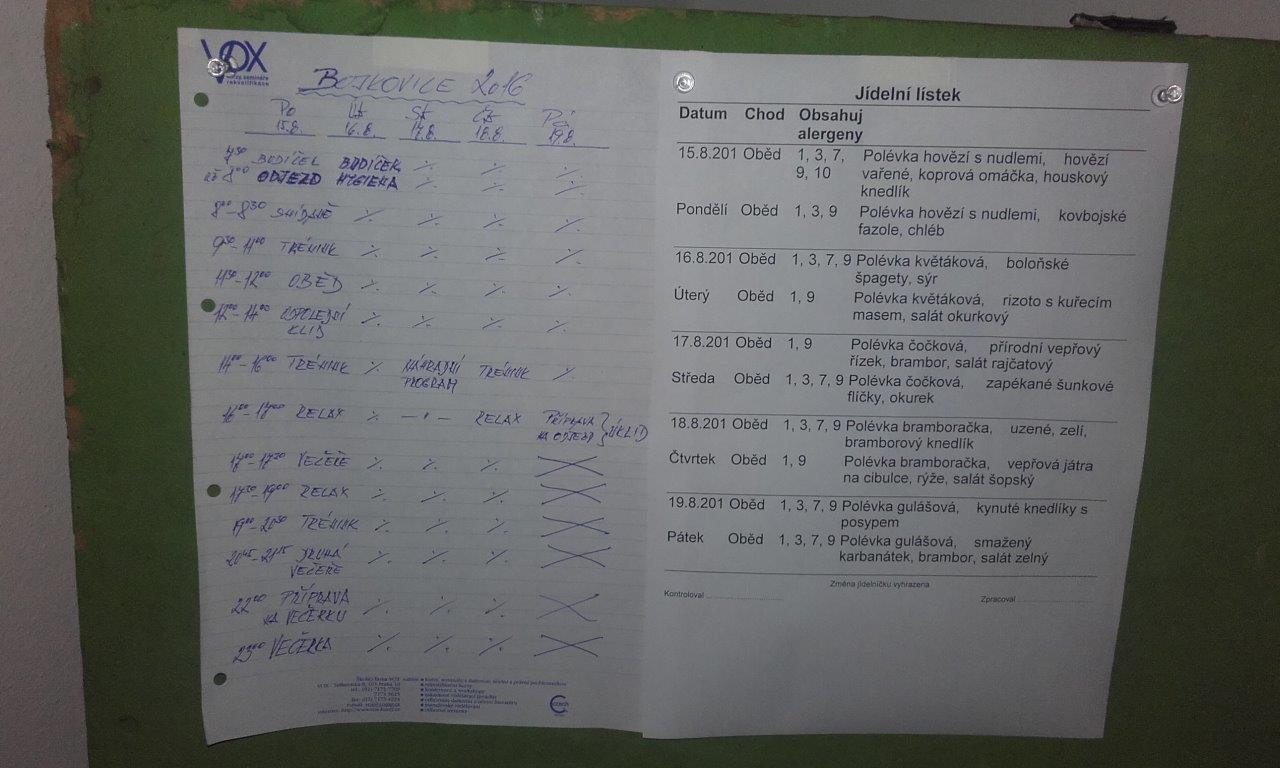 VOX
rekvalifikace
BOJKOVICE 2016
Po Út St Čt Pá
15.8. 16.8. 17.8. 18.8. 19.8.
730 BUDÍČEK BUDÍČEK ٪ ٪ ٪
až 800 ODJEZD HYGIENA ٪ ٪ ٪
800-830 SNÍDANĚ ٪ ٪ ٪ ٪
930-1100 TRÉNINK ٪ ٪ ٪ ٪
1130-1200 OBĚD ٪ ٪ ٪ ٪
1200-1400 ODPOLEDNÍ ٪ ٪ ٪ ٪
KLID
1400-1600 TRÉNINK ٪ NÁHRADNÍ TRÉNINK ٪
PROGRAM
1600-1700 RELAX ٪ —〃— RELAX PŘÍPRAVA } ÚKLID
NA ODJEZD
1700-1730 VEČEŘE ٪ ٪ ٪
1730-1900 RELAX ٪ ٪ ٪
1900-2030 TRÉNINK ٪ ٪ ٪
2045-2115 DRUHÁ ٪ ٪ ٪
VEČEŘE
2200 PŘÍPRAVA ٪ ٪ ٪
NA VEČERKU
2300 VEČERKA ٪ ٪ ٪
Jídelní lístek
Datum Chod Obsahuj
alergeny
15.8.201 Oběd 1, 3, 7, Polévka hovězí s nudlemi, hovězí
9, 10 vařené, koprová omáčka, houskový
knedlík
Pondělí Oběd 1, 3, 9 Polévka hovězí s nudlemi, kovbojské
fazole, chléb
16.8.201 Oběd 1, 3, 7, 9 Polévka květáková, boloňské
špagety, sýr
Úterý Oběd 1, 9 Polévka květáková, rizoto s kuřecím
masem, salát okurkový
17.8.201 Oběd 1, 9 Polévka čočková, přírodní vepřový
řízek, brambor, salát rajčatový
Středa Oběd 1, 3, 7, 9 Polévka čočková, zapékané šunkové
flíčky, okurek
18.8.201 Oběd 1, 3, 7, 9 Polévka bramboračka, uzené, zelí,
bramborový knedlík
Čtvrtek Oběd 1, 9 Polévka bramboračka, vepřová játra
na cibulce, rýže, salát šopský
19.8.201 Oběd 1, 3, 7, 9 Polévka gulášová, kynuté knedlíky s
posypem
Pátek Oběd 1, 3, 7, 9 Polévka gulášová, smažený
karbanátek, brambor, salát zelný
Změna jídelníčku vyhrazena
Kontroloval .......................... Zpracoval ..........................